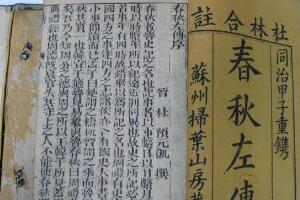 杜林合註
同治甲子重鐫
春秋左傳
蘇州掃葉山房
春秋左傳序
晉 杜預元凱 撰
春秋者魯史記之名也記事者以事繫日以日繫月
時以時繫年所以紀遠近別同異也故史之所記必表年
首事年有四時故錯舉以為所記之名也周禮有史
四方之事達四方之志諸侯亦各有國史大事書
小事簡牘而已孟子曰楚謂之檮杌晉謂之乘而魯
秋其實一也韓宣子適魯見易象與魯春秋曰周禮
矣吾乃今知周公之德與周之所以王韓子所見蓋
典禮經也周德既衰官失其守上之人不能使春秋